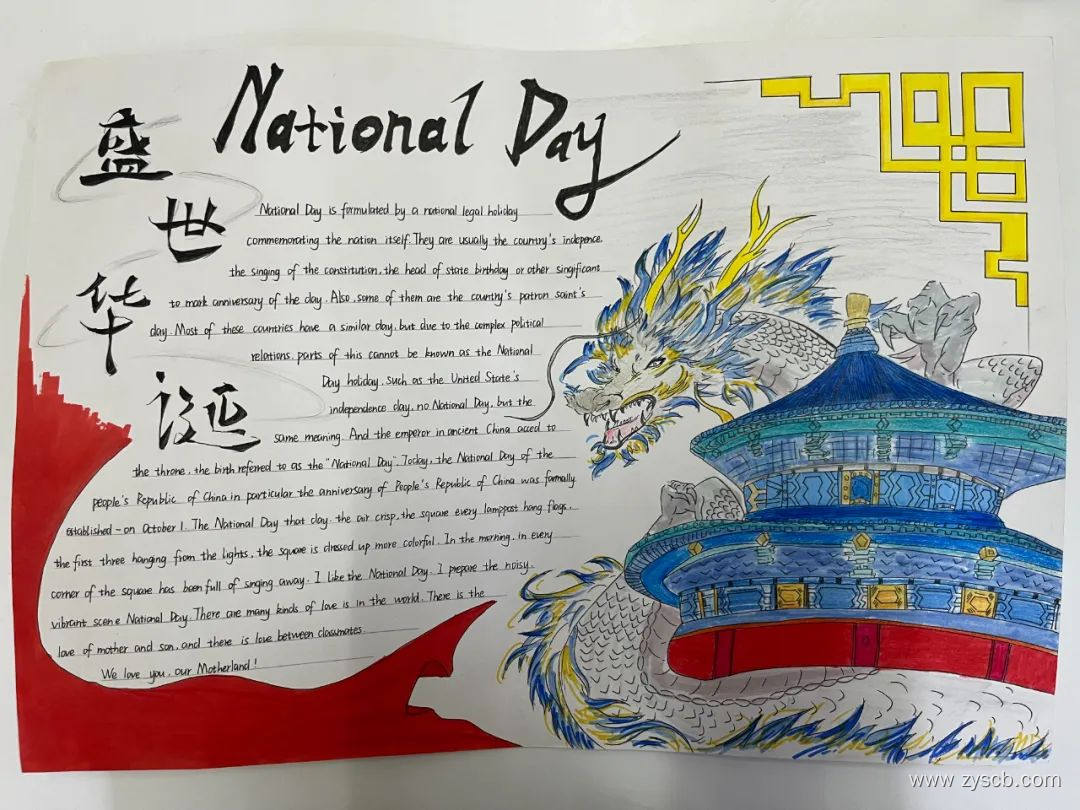 National Day
盛世华诞
National Day is formulated by a national legal holiday
commemorating the nation itself. They are usually the country's indepence.
the singing of the constitution, the head of state birthday or other singificant
to mark anniversary of the day. Also, some of them are the country's patron saint's
day. Most of these countries have a similar day, but due to the complex political
relations, parts of this cannot be known as the National
Day holiday, such as the United State's
independence day, no National Day, but the
same meaning. And the emperor in ancient China acced to
the throne, the birth referred to as the "National Day". Today, the National Day of the
people's Republic of China in particular the anniversary of People's Republic of China was formally
established-on October 1. The National Day that day, the air crisp, the square every lamppost hang flags,
the first three hanging from the lights, the square is dressed up more colorful. In the morning, in every
corner of the square has been full of singing away. I like the National Day. I prepare the noisy,
vibrant scene National Day. There are many kinds of love is in the world. There is the
love of mother and son, and there is love between classmates.
We love you, our Motherland!
www.zyscb.com